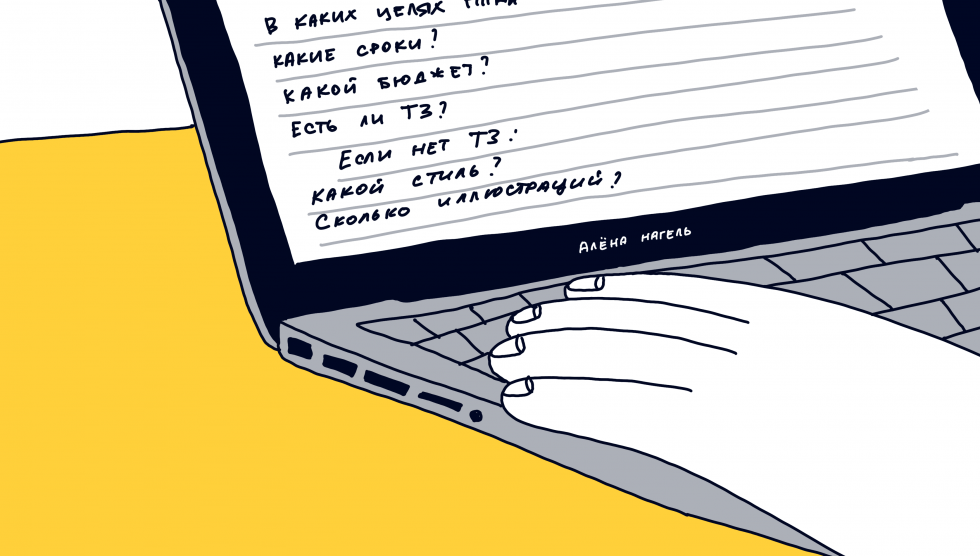 В КАКИХ ЦЕЛЯХ
КАКИЕ СРОКИ?
КАКОЙ БЮДЖЕТ?
ЕСТЬ ЛИ ТЗ?
ЕСЛИ НЕТ ТЗ:
КАКОЙ СТИЛЬ?
СКОЛЬКО ИЛЛЮСТРАЦИЙ?
АЛЁНА НАГЕЛЬ